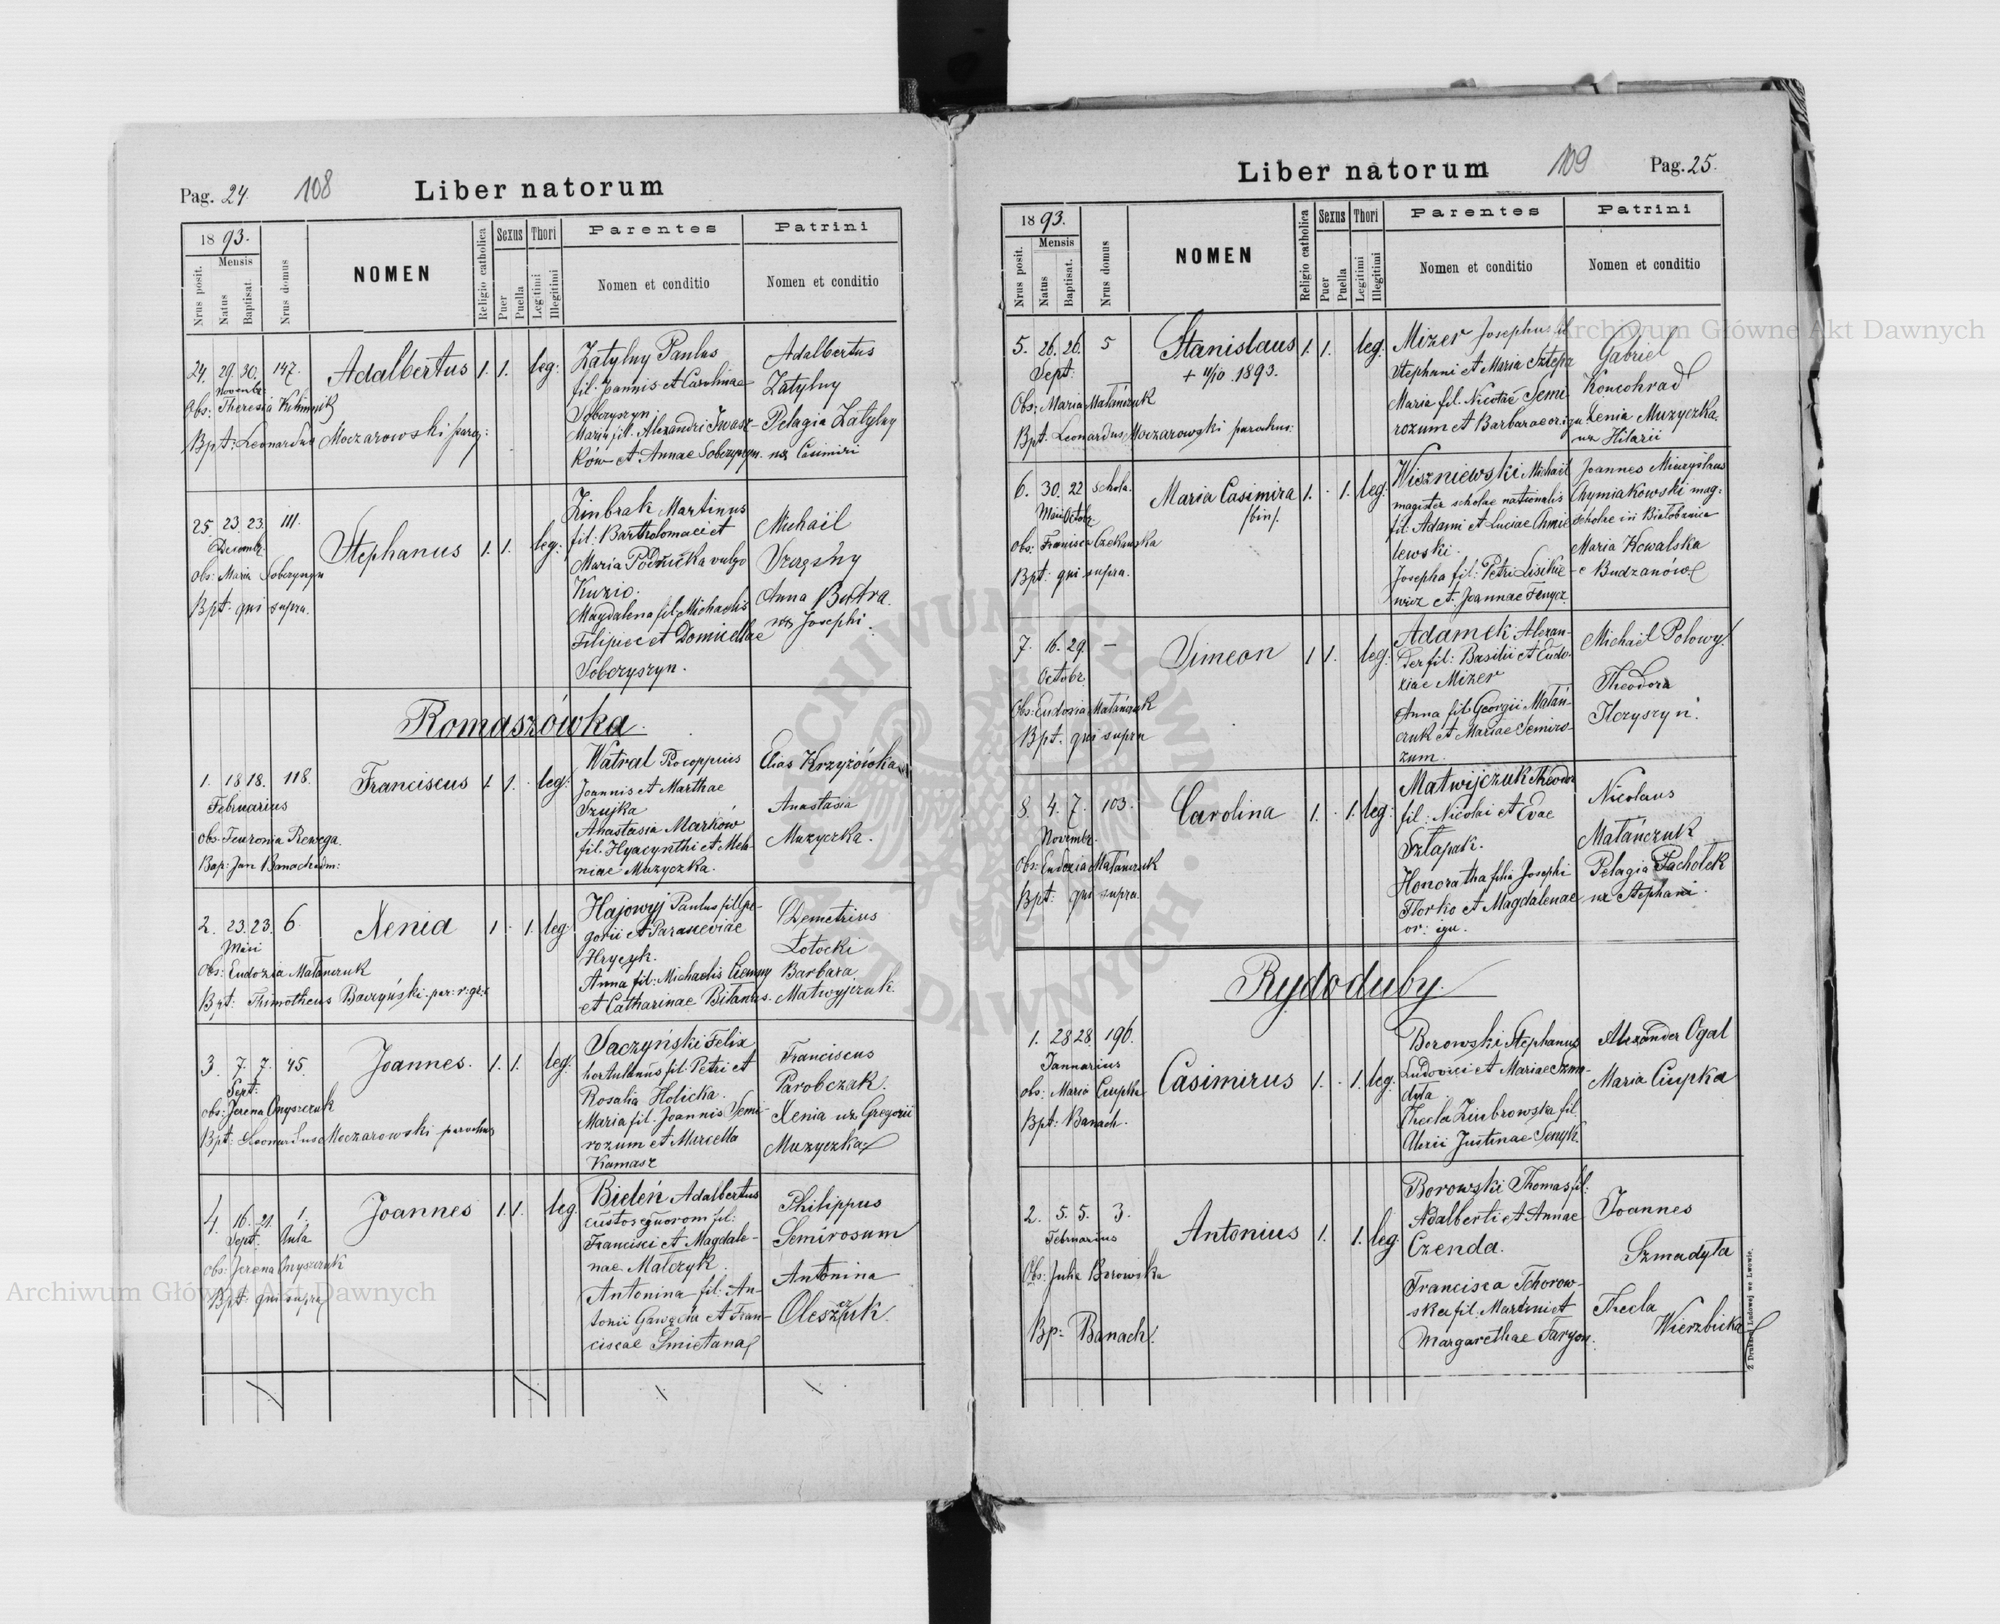 Pag. 24.
108
Liber natorum
1893.
Mensis
Nrus posit.
Natus
Baptisat.
Nrus domus
NOMEN
Religio catholica
Sexus
Puer
Puella
Thori
Legitimi
Illegitimi
Parentes
Nomen et conditio
Patrini
Nomen et conditio
24. 29. 30. 147. Adalbertus 1. 1. leg:
Novembr
Obs: Theresia Klimnik
Bpt: Leonardus Moczarowski paroq:
Zatylny Paulus
fil. Joannis et Carolinae
Soboryszyn
Maria fil. Alexandri Iwasz-
ków et Annae Soboryszyn.
Adalbertus
Zatylny
Pelagia Zatylny
ux Casimiri
25. 23. 23. 111. Stephanus 1. 1. leg:
Decembr.
Obs: Maria Soboryszyn
Bpt: qui supra.
Zimbrak Martinus
fil: Bartholomaei et
Maria Podnicka vulgo
Kuzio.
Magdalena fil. Michaelis
Filipiec et Domicellae
Soboryszyn.
Michail
Anna Butra.
ux Josephi.
Romaszówka.
1. 18 18. 118. Franciscus 1. 1. leg:
Februarius
obs: Feuronia Rewega.
Bap: Jan Banach adm:
Watral Procoppius
Joannis et Marthae
Szujka
Anastasia Marków
fil. Hyacynthi et Mela-
niae Muzyczka.
Elias Krzyżówka
Anastasia
Muzyczka.
2. 23. 23. 6. Xenia 1 1. leg:
Maii
Obs: Eudoxia Matańczuk
Bpt: Thimotheus Baczyński par: r: gr:
Hajowyj Paulus fil Gre-
gorii et Parasceviae
Hrycyk.
Anna fil: Michaelis Ciemny
et Catharinae Bitanus.
Demetrius
Łotocki
Barbara
Matwyjczuk.
3. 7. 7. 45. Joannes. 1. 1. leg:
Sept:
obs: Jerena Onyszczuk
Bpt: Leonardus Moczarowski parochus
Saczyński Felix
hortulanus fil. Petri et
Rosalia Holicka.
Maria fil. Joannis Semi-
rozum et Marcella
Kamasz
Franciscus
Parobczak.
Xenia ux Gregorii
Muzyczka
4. 16. 21. 1. Joannes 1. 1. leg.
Sept: Aula
obs: Jerena Onyszczuk
Bpt: qui supra
Bieleń Adalbertus
custos equorom fil:
Francisci et Magdale-
nae Matczyk.
Antonina fil: An-
tonii Gawęda et Fran-
ciscae Smietana
Philippus
Semirosum
Antonina
Oleszczuk.
Liber natorum
109
Pag. 25.
1893.
Mensis
Nrus posit.
Natus
Baptisat.
Nrus domus
NOMEN
Religio catholica
Sexus
Puer
Puella
Thori
Legitimi
Illegitimi
Parentes
Nomen et conditio
Patrini
Nomen et conditio
5. 26. 26. 5 Stanislaus 1. 1. leg:
Sept: + 11/10 1893.
Obs: Maria Matańczuk
Bpt. Leonardus Moczarowski parochus:
Mizer Josephus fil
Stephani et Maria Sztepa
Maria fil. Nicolae Semi
rozum et Barbarae origu
Gabriel
Koncohrad
Xenia Muzyczka
ux Hilarii
6. 30. 22 schola. Maria Casimira 1. 1. leg:
Maii Octobr /bin/.
obs: Francisca Czekauska
Bpt: qui supra.
Wiszniewski Michael
magister scholae nationalis
fil: Adami et Luciae Chmie
lewski.
Josepha fil: Petri Liskie-
wicz et Joannae Fenycz
Joannes Mieczysłaus
Chymiakowski mag:
scholae in Białobożnica
Maria Kowalska
e Budzanów
7. 16. 29. — Simeon 1 1. leg:
Octobr
Obs: Eudoxia Matańczuk
Bpt. qui supra
Adamek Alexan-
der fil: Basilii et Eudo-
xiae Mizer
Anna fil Georgii Matań-
czuk et Mariae Semiro-
zum.
Michael Polowy
Theodora
Ilczyszyn.
8. 4. 7. 103. Carolina 1. 1. leg:
Novembr.
Obs: Eudoxia Matańczuk
Bpt: qui supra
Matwijczuk Theodor
fil: Nicolai et Evae
Szlapak.
Honoratha filia Josephi
Florko et Magdalenae
or: igu.
Nicolaus
Matańczuk
Pelagia Pachołek
ux Stephani.
Rydoduby.
1. 28 28. 196. Casimirus 1. 1. leg.
Jannuarius
obs: Maria Ciupka
Bpt: Banach.
Borowski Stephanus
Ludovici et Mariae Szma-
dyta
Thecla Zimbrowska fil.
Alexii Justinae Senyk.
Alexander Ogal
Maria Ciupka
2. 5. 5. 3. Antonius 1. 1. leg
Februarius
Obs: Julia Borowska
Bp: Banach.
Borowski Thomas fil:
Adalberti et Annae
Czenda.
Francisca Tchorow-
ska fil. Martini et
Margarethae Taryon.
Joannes
Szmadyta
Thecla
Wierzbicka
Z Drukarni Ludowej we Lwowie.
Archiwum Główne Akt Dawnych
Archiwum Główne Akt Dawnych
ARCHIWUM GŁÓWNE AKT DAWNYCH